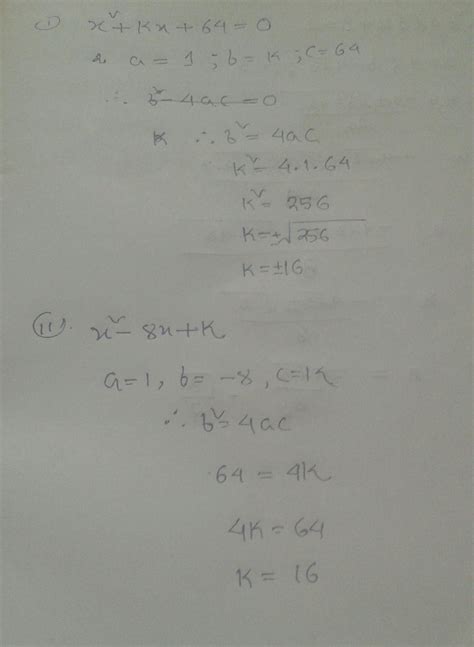 (i) x² + Kx + 64 = 0
a = 1 ; b = K ; c = 64
∴ b² - 4ac = 0
K ∴ b² = 4ac
K² = 4.1.64
K² = 256
K = ±√256
K = ±16
(ii). x² - 8x + K
a = 1, b = -8, c = K
∴ b² = 4ac
64 = 4K
4K = 64
K = 16